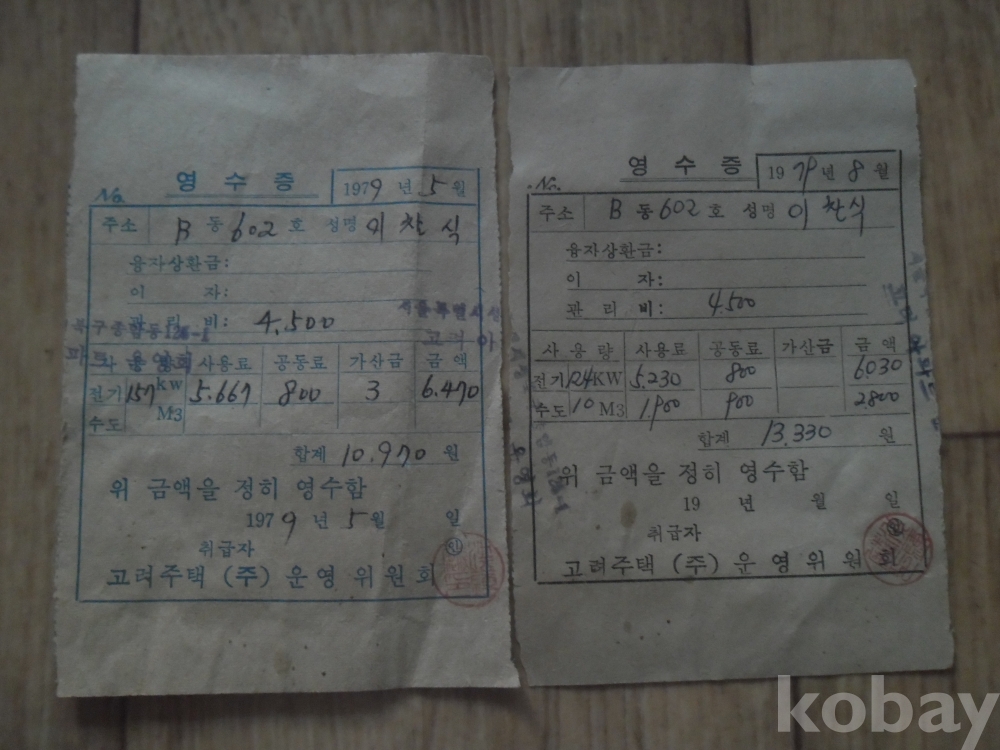 영수증
No.
1979년 5월
주소 B동 602호 성명 이찬식
융자상환금:
이 자:
관리비: 4,500
사용량 사용료 공동료 가산금 금액
전기 157 kw 5.667 800 3 6.470
수도 M3
합계 10.970 원
위 금액을 정히 영수함
1979년 5월 일
취급자 인
고려주택 (주) 운영위원회
영수증
No.
1979년 8월
주소 B동 602호 성명 이찬식
융자상환금:
이 자:
관리비: 4.500
사용량 사용료 공동료 가산금 금액
전기 124 KW 5.230 800 6030
수도 10 M3 1.900 900 2800
합계 13.330 원
위 금액을 정히 영수함
19 년 월 일
취급자 인
고려주택 (주) 운영위원회
kobay